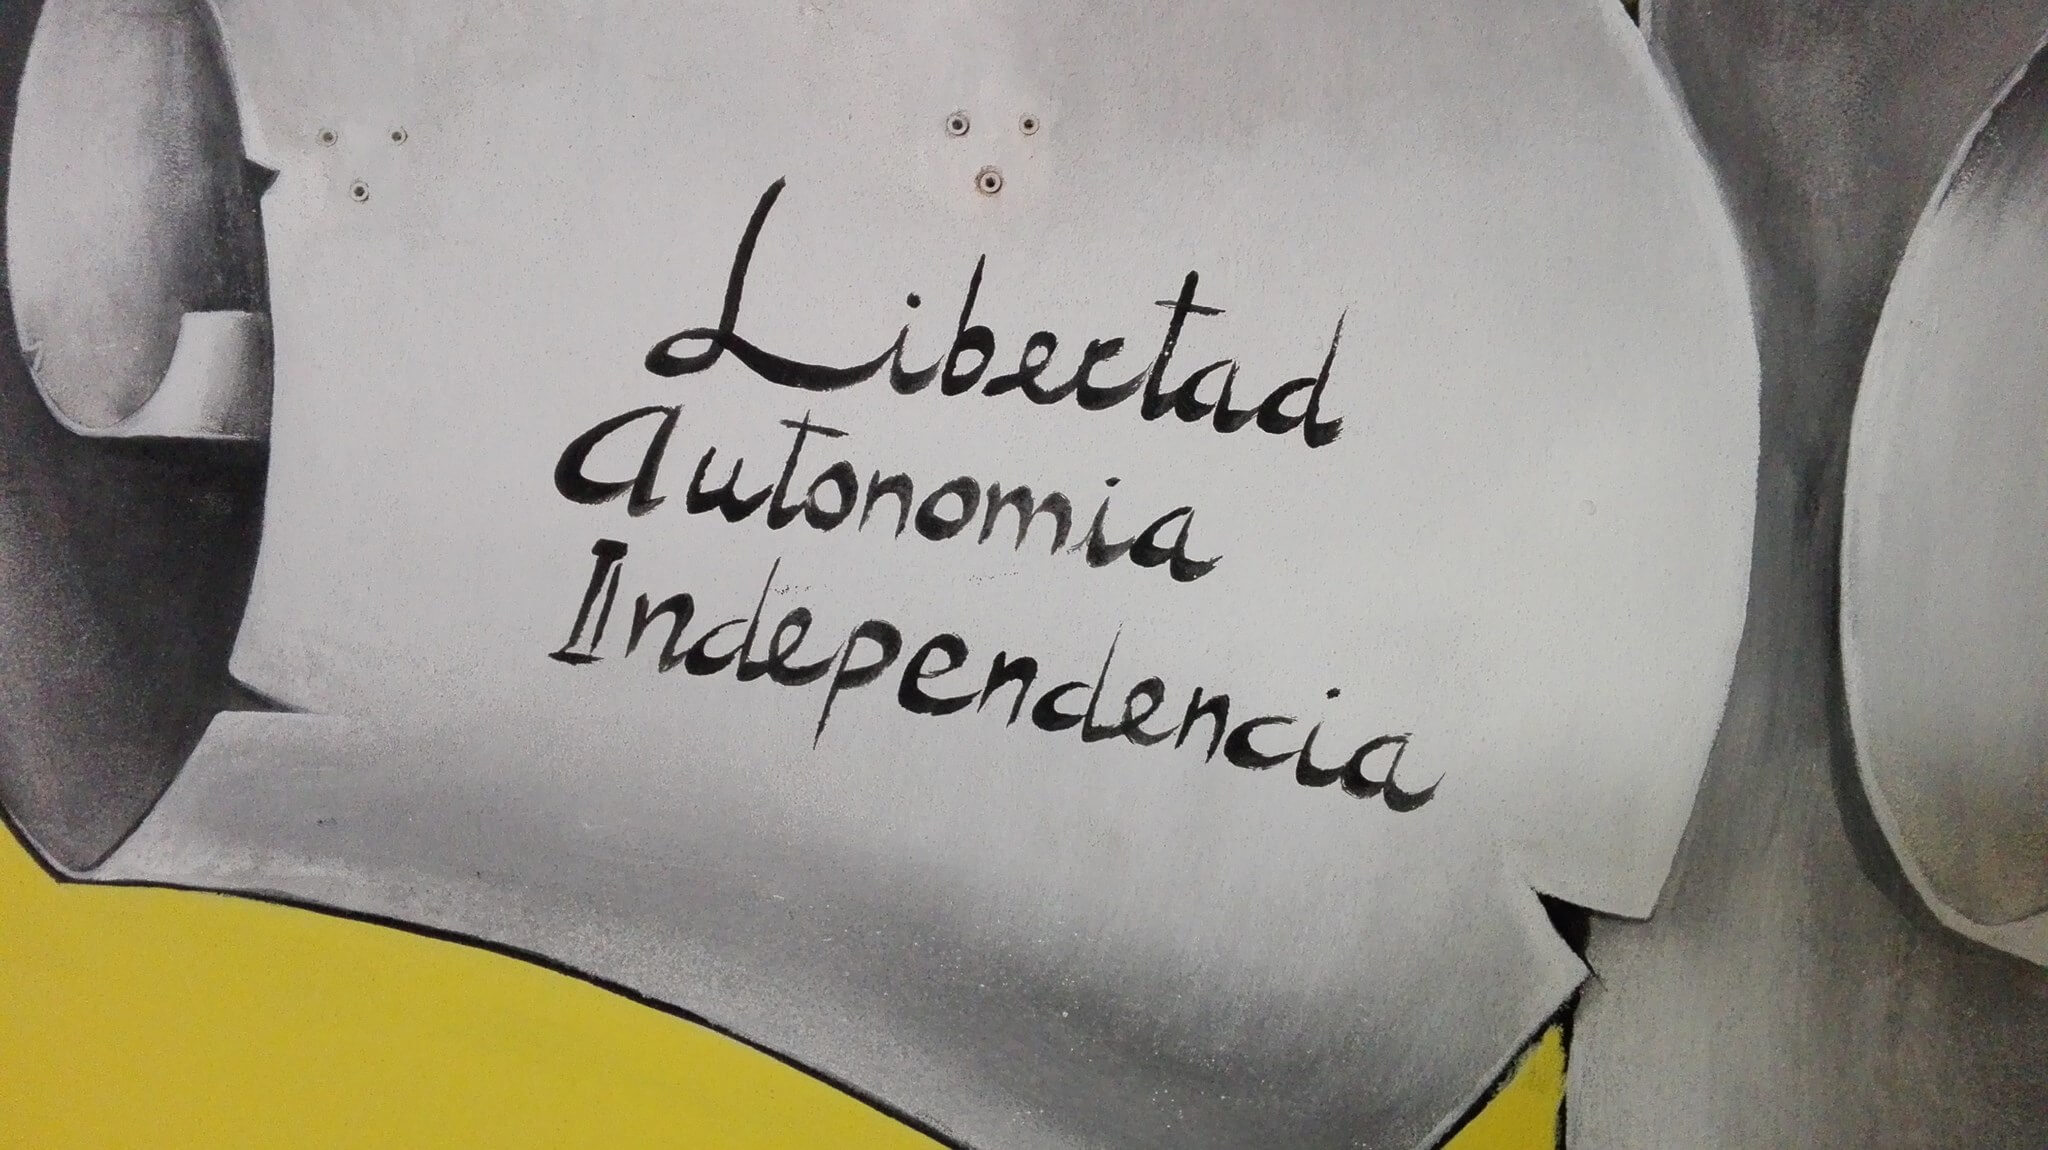 Libertad
Autonomia
Independencia